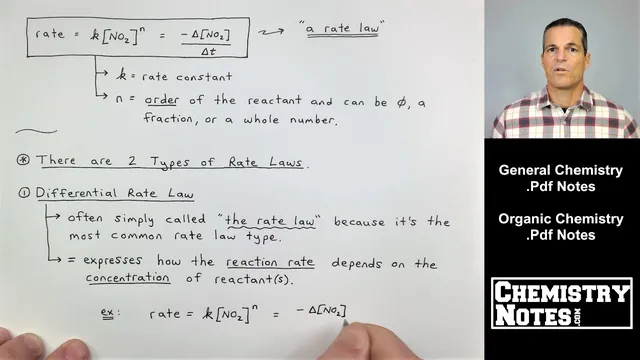 rate = k[NO₂]ⁿ = -Δ[NO₂] / Δt → "a rate law"
→ k = rate constant
→ n = order of the reactant and can be ϕ, a
fraction, or a whole number.
⊛ There are 2 Types of Rate Laws.
① Differential Rate Law
→ often simply called "the rate law" because it's the
most common rate law type.
→ = expresses how the reaction rate depends on the
concentration of reactant(s).
ex: rate = k[NO₂]ⁿ = -Δ[NO₂]
General Chemistry
.Pdf Notes
Organic Chemistry
.Pdf Notes
CHEMISTRY
NOTES.COM